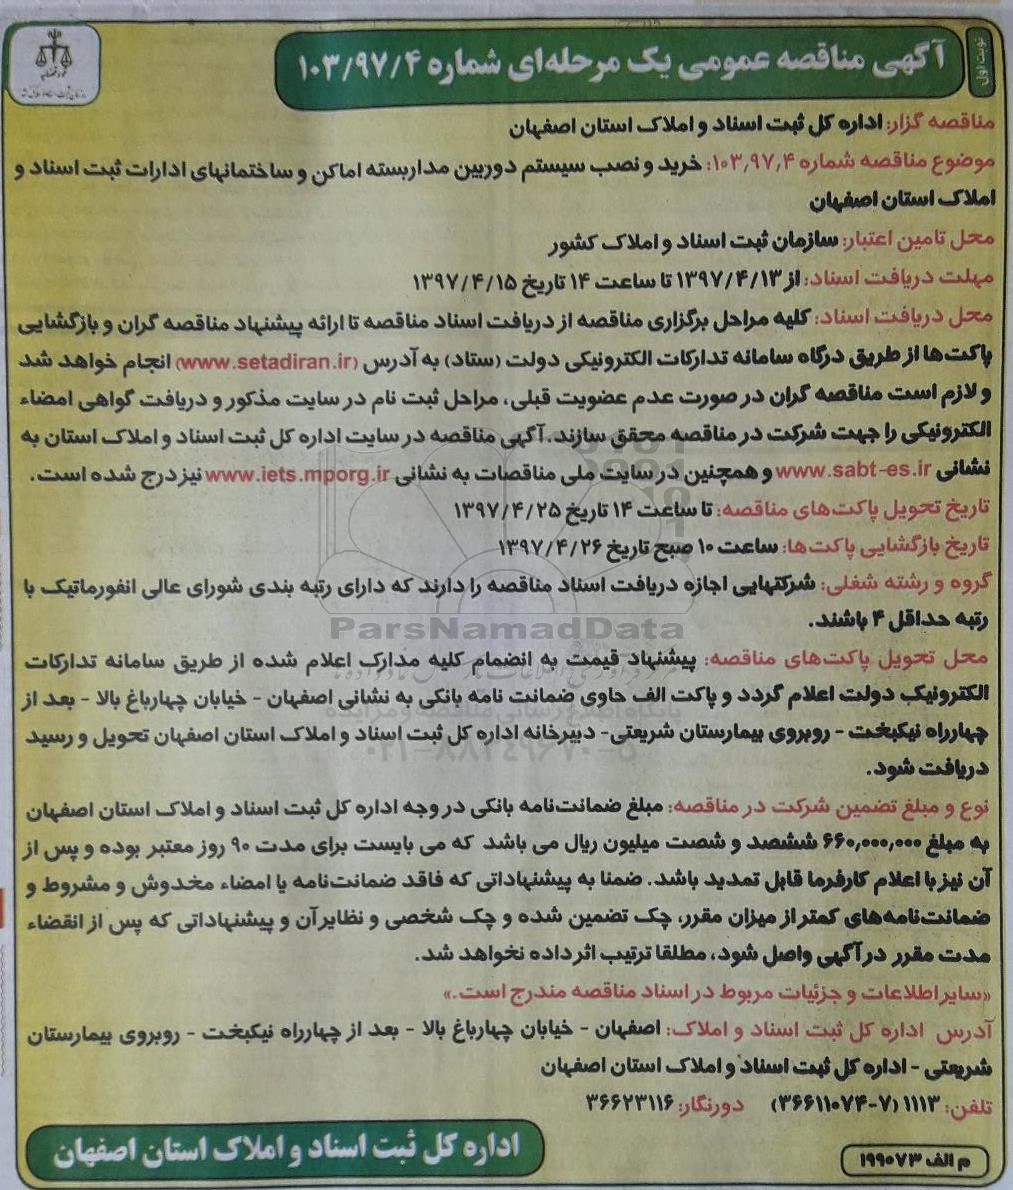 نوبت اول
آگهی مناقصه عمومی یک مرحله‌ای شماره ۱۰۳/۹۷/۴
مناقصه گزار: اداره کل ثبت اسناد و املاک استان اصفهان
موضوع مناقصه شماره ۱۰۳٫۹۷٫۴: خرید و نصب سیستم دوربین مداربسته اماکن و ساختمانهای ادارات ثبت اسناد و
املاک استان اصفهان
محل تامین اعتبار: سازمان ثبت اسناد و املاک کشور
مهلت دریافت اسناد: از ۱۳۹۷/۴/۱۳ تا ساعت ۱۴ تاریخ ۱۳۹۷/۴/۱۵
محل دریافت اسناد: کلیه مراحل برگزاری مناقصه از دریافت اسناد مناقصه تا ارائه پیشنهاد مناقصه گران و بازگشایی
پاکت‌ها از طریق درگاه سامانه تدارکات الکترونیکی دولت (ستاد) به آدرس (www.setadiran.ir) انجام خواهد شد
و لازم است مناقصه گران در صورت عدم عضویت قبلی، مراحل ثبت نام در سایت مذکور و دریافت گواهی امضاء
الکترونیکی را جهت شرکت در مناقصه محقق سازند. آگهی مناقصه در سایت اداره کل ثبت اسناد و املاک استان به
نشانی www.sabt-es.ir و همچنین در سایت ملی مناقصات به نشانی www.iets.mporg.ir نیز درج شده است.
تاریخ تحویل پاکت‌های مناقصه: تا ساعت ۱۴ تاریخ ۱۳۹۷/۴/۲۵
تاریخ بازگشایی پاکت‌ها: ساعت ۱۰ صبح تاریخ ۱۳۹۷/۴/۲۶
گروه و رشته شغلی: شرکتهایی اجازه دریافت اسناد مناقصه را دارند که دارای رتبه بندی شورای عالی انفورماتیک با
رتبه حداقل ۴ باشند.
ParsNamadData
محل تحویل پاکت‌های مناقصه: پیشنهاد قیمت به انضمام کلیه مدارک اعلام شده از طریق سامانه تدارکات
الکترونیک دولت اعلام گردد و پاکت الف حاوی ضمانت نامه بانکی به نشانی اصفهان - خیابان چهارباغ بالا - بعد از
چهارراه نیکبخت - روبروی بیمارستان شریعتی- دبیرخانه اداره کل ثبت اسناد و املاک استان اصفهان تحویل و رسید
دریافت شود.
نوع و مبلغ تضمین شرکت در مناقصه: مبلغ ضمانت‌نامه بانکی در وجه اداره کل ثبت اسناد و املاک استان اصفهان
به مبلغ ۶۶۰٫۰۰۰٫۰۰۰ ششصد و شصت میلیون ریال می باشد که می بایست برای مدت ۹۰ روز معتبر بوده و پس از
آن نیز با اعلام کارفرما قابل تمدید باشد. ضمنا به پیشنهاداتی که فاقد ضمانت‌نامه یا امضاء مخدوش و مشروط و
ضمانت‌نامه‌های کمتر از میزان مقرر، چک تضمین شده و چک شخصی و نظایر آن و پیشنهاداتی که پس از انقضاء
مدت مقرر در آگهی واصل شود، مطلقا ترتیب اثر داده نخواهد شد.
«سایر اطلاعات و جزئیات مربوط در اسناد مناقصه مندرج است.»
آدرس اداره کل ثبت اسناد و املاک: اصفهان - خیابان چهارباغ بالا - بعد از چهارراه نیکبخت - روبروی بیمارستان
شریعتی - اداره کل ثبت اسناد و املاک استان اصفهان
تلفن: ۱۱۱۳ (۷-۳۶۶۱۱۰۷۴) دورنگار: ۳۶۶۲۳۱۱۶
م الف ۱۹۹۰۷۳
اداره کل ثبت اسناد و املاک استان اصفهان